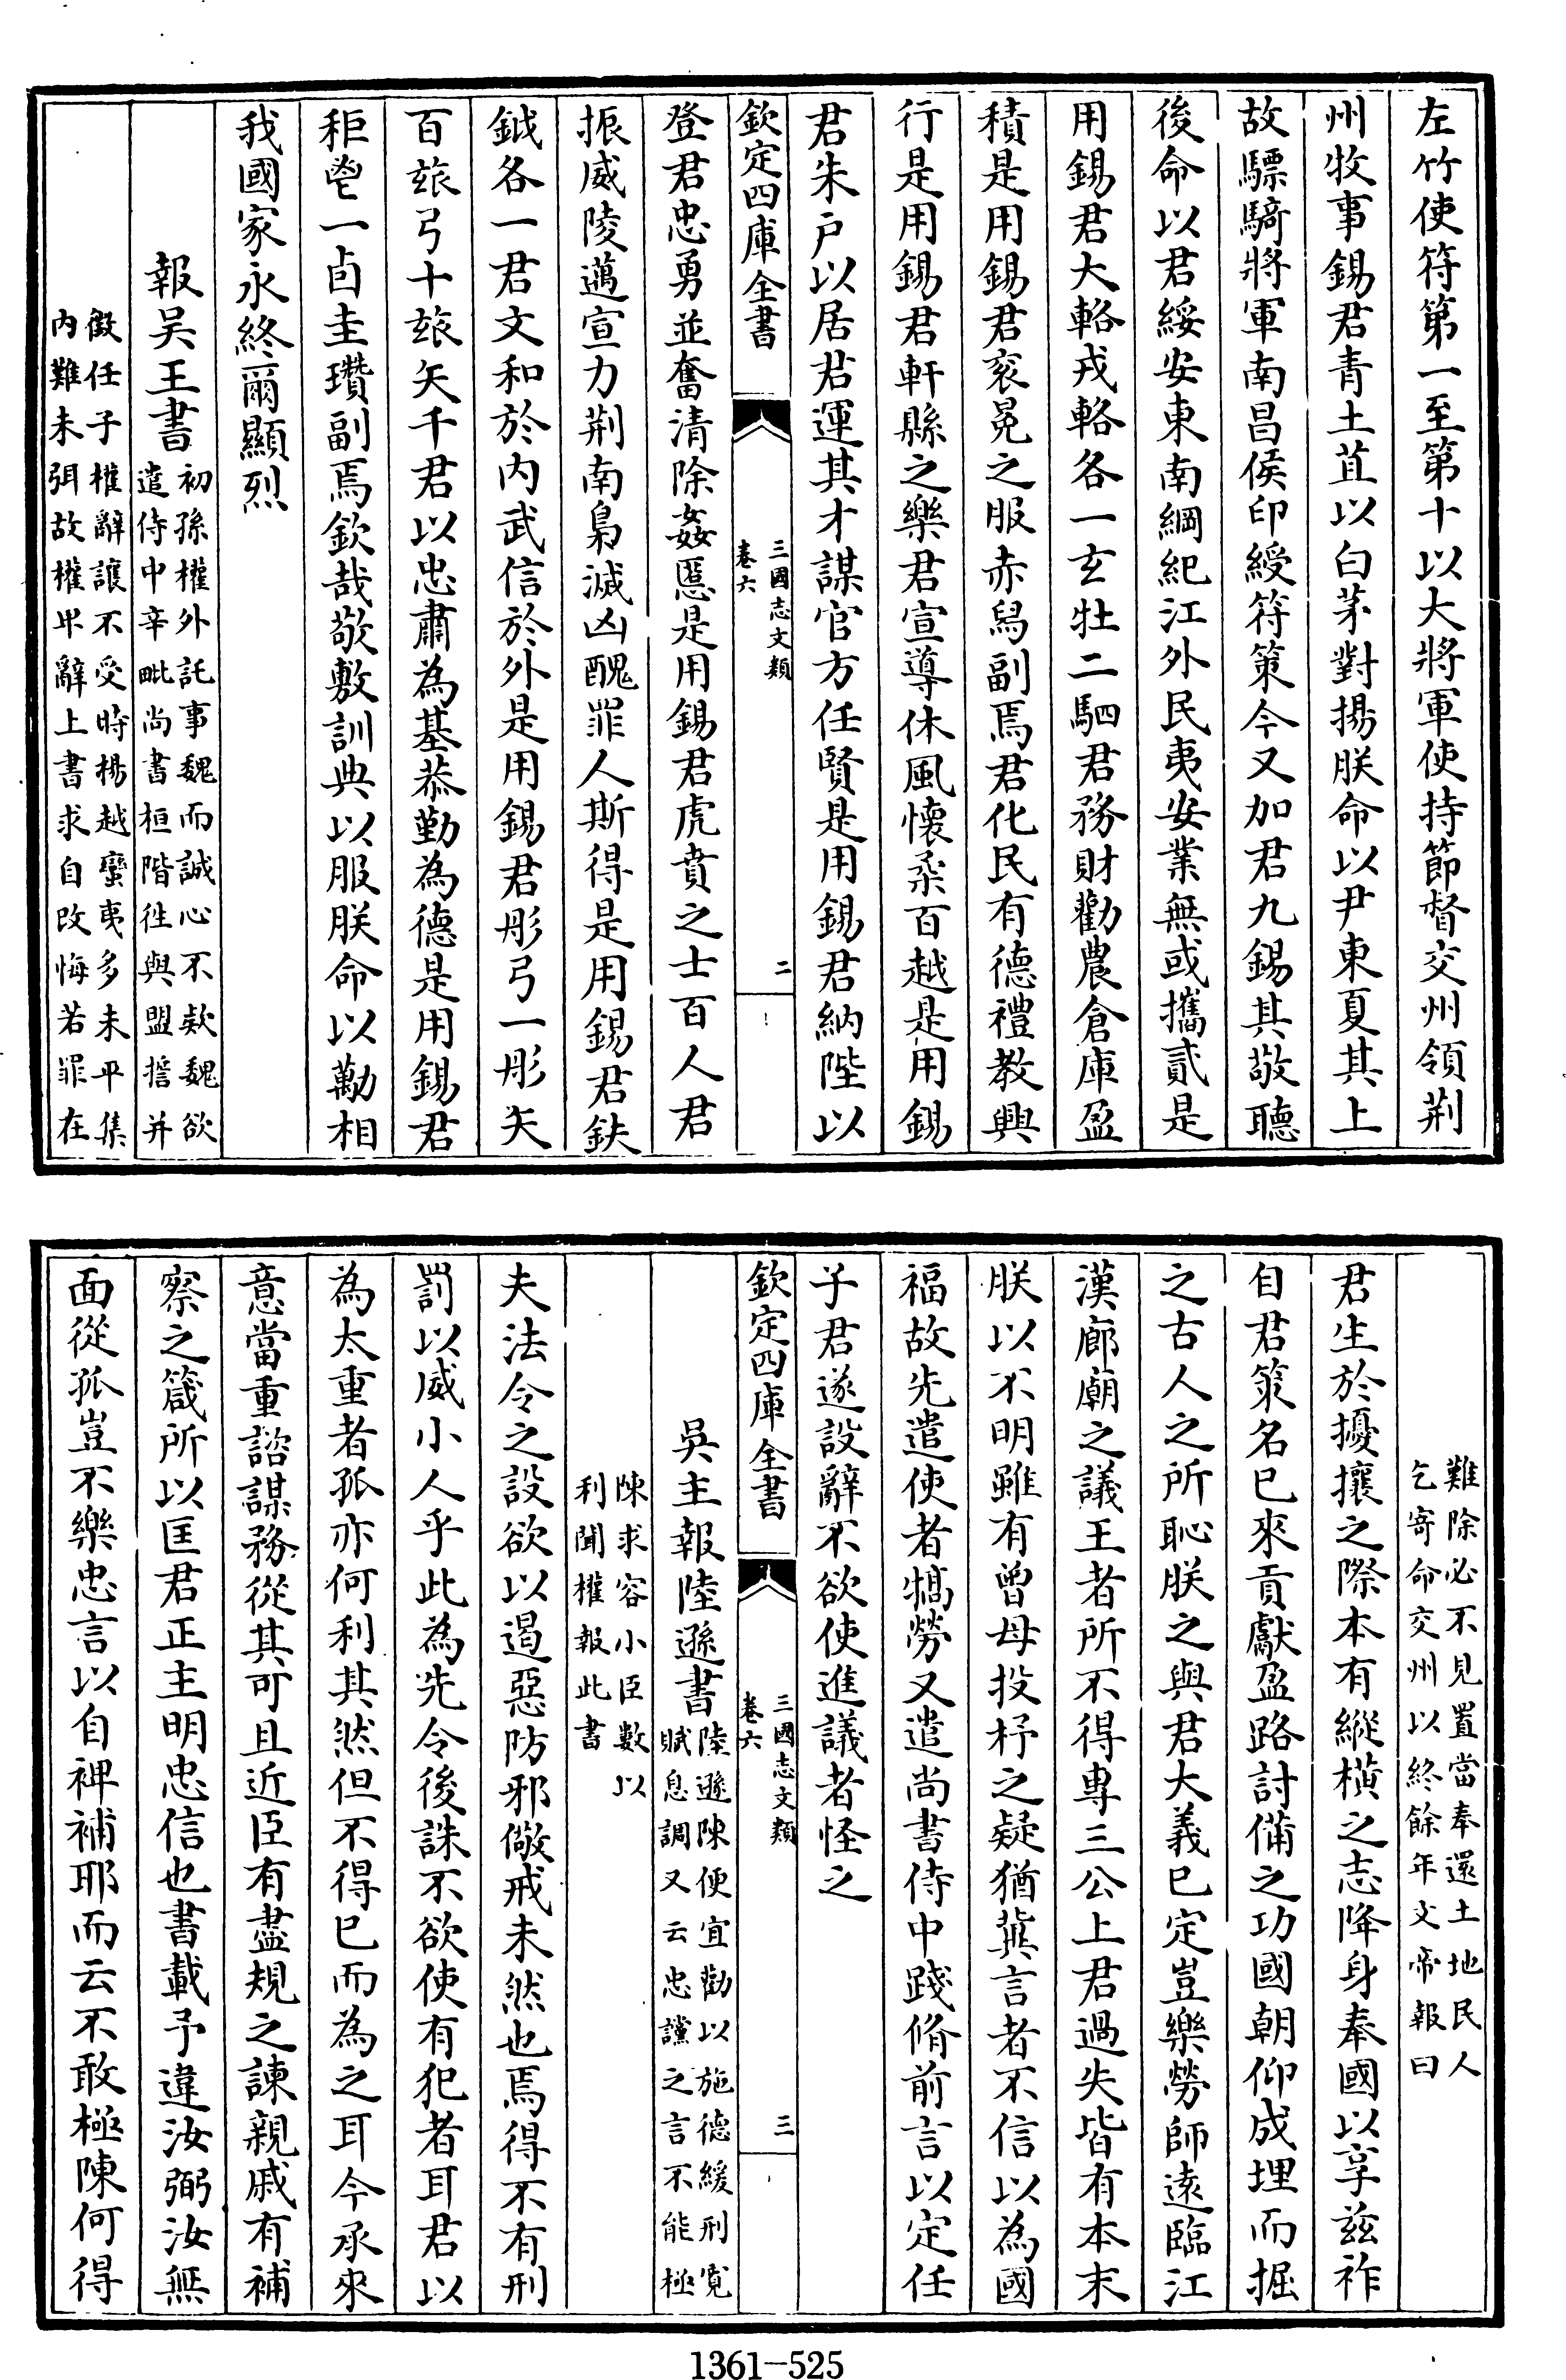 左竹使符第一至第十以大將軍使持節督交州領荆
州牧事錫君青土苴以白茅對揚朕命以尹東夏其上
故驃騎將軍南昌侯印綬符策今又加君九錫其敬聽
後命以君綏安東南綱紀江外民夷安業無或攜貳是
用錫君大輅戎輅各一玄牡二駟君務財勸農倉庫盈
積是用錫君衮冕之服赤舄副焉君化民有德禮教興
行是用錫君軒縣之樂君宣導休風懷柔百越是用錫
君朱戶以居君運其才謀官方任賢是用錫君納陛以
欽定四庫全書
三國志文類
卷六
二
登君忠勇並奮清除姦慝是用錫君虎賁之士百人君
振威陵邁宣力荆南梟滅凶醜罪人斯得是用錫君鈇
鉞各一君文和於内武信於外是用錫君彤弓一彤矢
百玈弓十玈矢千君以忠肅為基恭勤為德是用錫君
秬鬯一卣圭瓚副焉欽哉敬敷訓典以服朕命以勷相
我國家永終爾顯烈
報吴王書
初孫權外託事魏而誠心不欵魏欲
遣侍中辛毗尚書桓階徃與盟誓并
徵任子權辭讓不受時揚越蠻夷多未平集
内難未弭故權卑辭上書求自改悔若罪在
難除必不見置當奉還土地民人
乞寄命交州以終餘年文帝報曰
君生於擾攘之際本有縱橫之志降身奉國以享兹祚
自君策名已來貢獻盈路討備之功國朝仰成埋而掘
之古人之所恥朕之與君大義已定豈樂勞師遠臨江
漢廊廟之議王者所不得專三公上君過失皆有本末
朕以不明雖有曾母投杼之疑猶冀言者不信以為國
福故先遣使者犒勞又遣尚書侍中踐脩前言以定任
子君遂設辭不欲使進議者怪之
欽定四庫全書
三國志文類
卷六
三
吳主報陸遜書
陸遜陳便宜勸以施德緩刑寬
賦息調又云忠讜之言不能極
陳求容小臣數以
利聞權報此書
夫法令之設欲以遏惡防邪儆戒未然也焉得不有刑
罰以威小人乎此為先令後誅不欲使有犯者耳君以
為太重者孤亦何利其然但不得已而為之耳今承來
意當重諮謀務從其可且近臣有盡規之諫親戚有補
察之箴所以匡君正主明忠信也書載予違汝弼汝無
面從孤豈不樂忠言以自裨補耶而云不敢極陳何得
1361-525